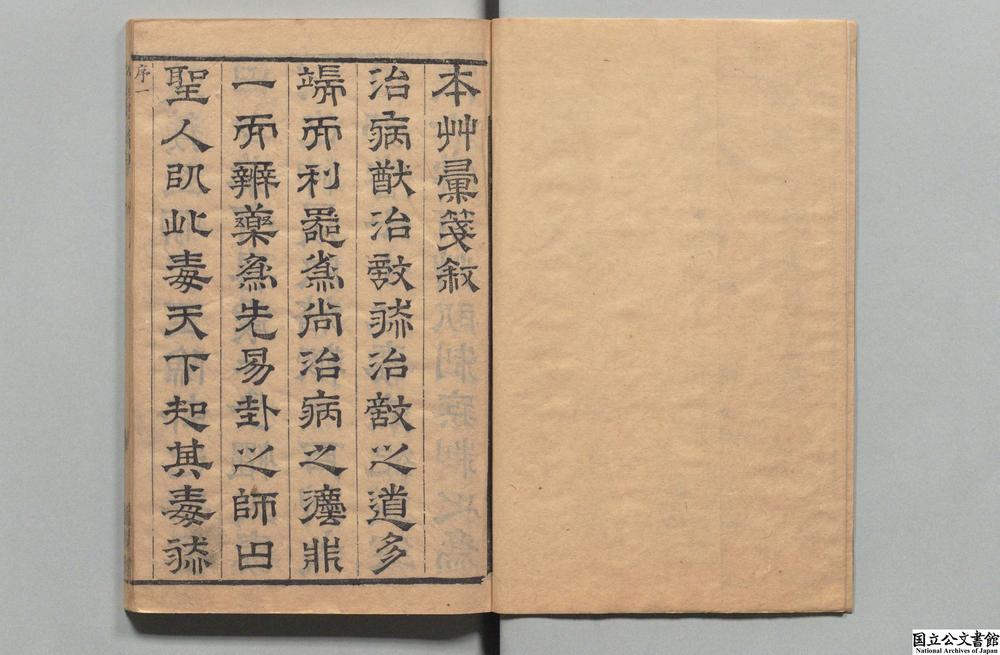 本艸彙箋敘
治病猷治敵㳅治敵之道多
端而利器爲尚治病之灋非
一而辨藥爲先易卦之師曰
聖人㠯此毒天下知其毒㳅
序一
国立公文書館
National Archives of Japan